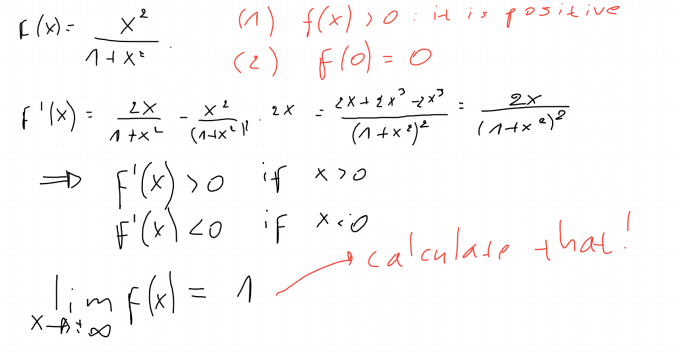 f(x) = x²/(1+x²) . (1) f(x) > 0 : it is positive
(2) f(0) = 0
f'(x) = 2x/(1+x²) - x²/(1+x²)² · 2x = (2x+2x³-2x³)/(1+x²)² = 2x/(1+x²)²
⇒ f'(x) > 0 if x > 0
f'(x) < 0 if x < 0
calculate that!
lim f(x) = 1
x→±∞